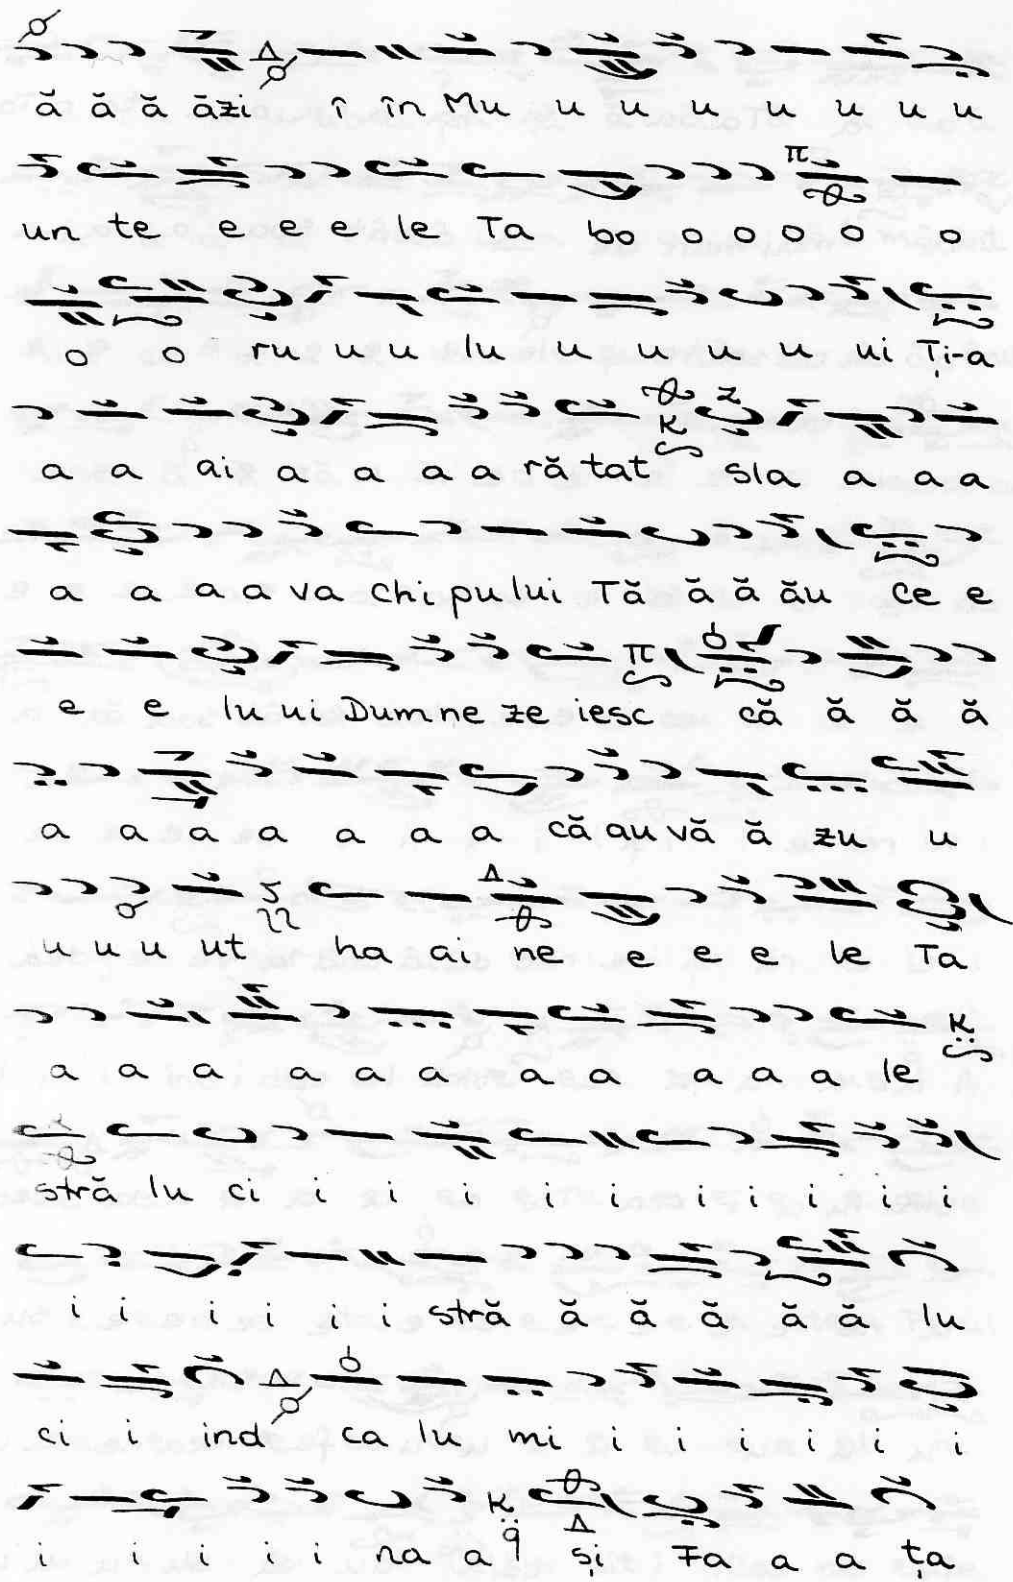 ă ă ă ăzi î în Mu u u u u u u u
un te e e e le Ta bo o o o o o
o o ru u u lu u u u u ui Ți-a
a a ai a a a a ră tat sla a a a
a a a a va chi pu lui Tă ă ă ău ce e
e e lu ui Dum ne ze iesc că ă ă ă
a a a a a a a că au vă ă zu u
u u u ut ha ai ne e e e le Ta
a a a a a a a a a a a le
stră lu ci i i i i i i i i i i
i i i i i i stră ă ă ă ă ă lu
ci i ind ca lu mi i i i i i i
i i i i i na a și Fa a a ța